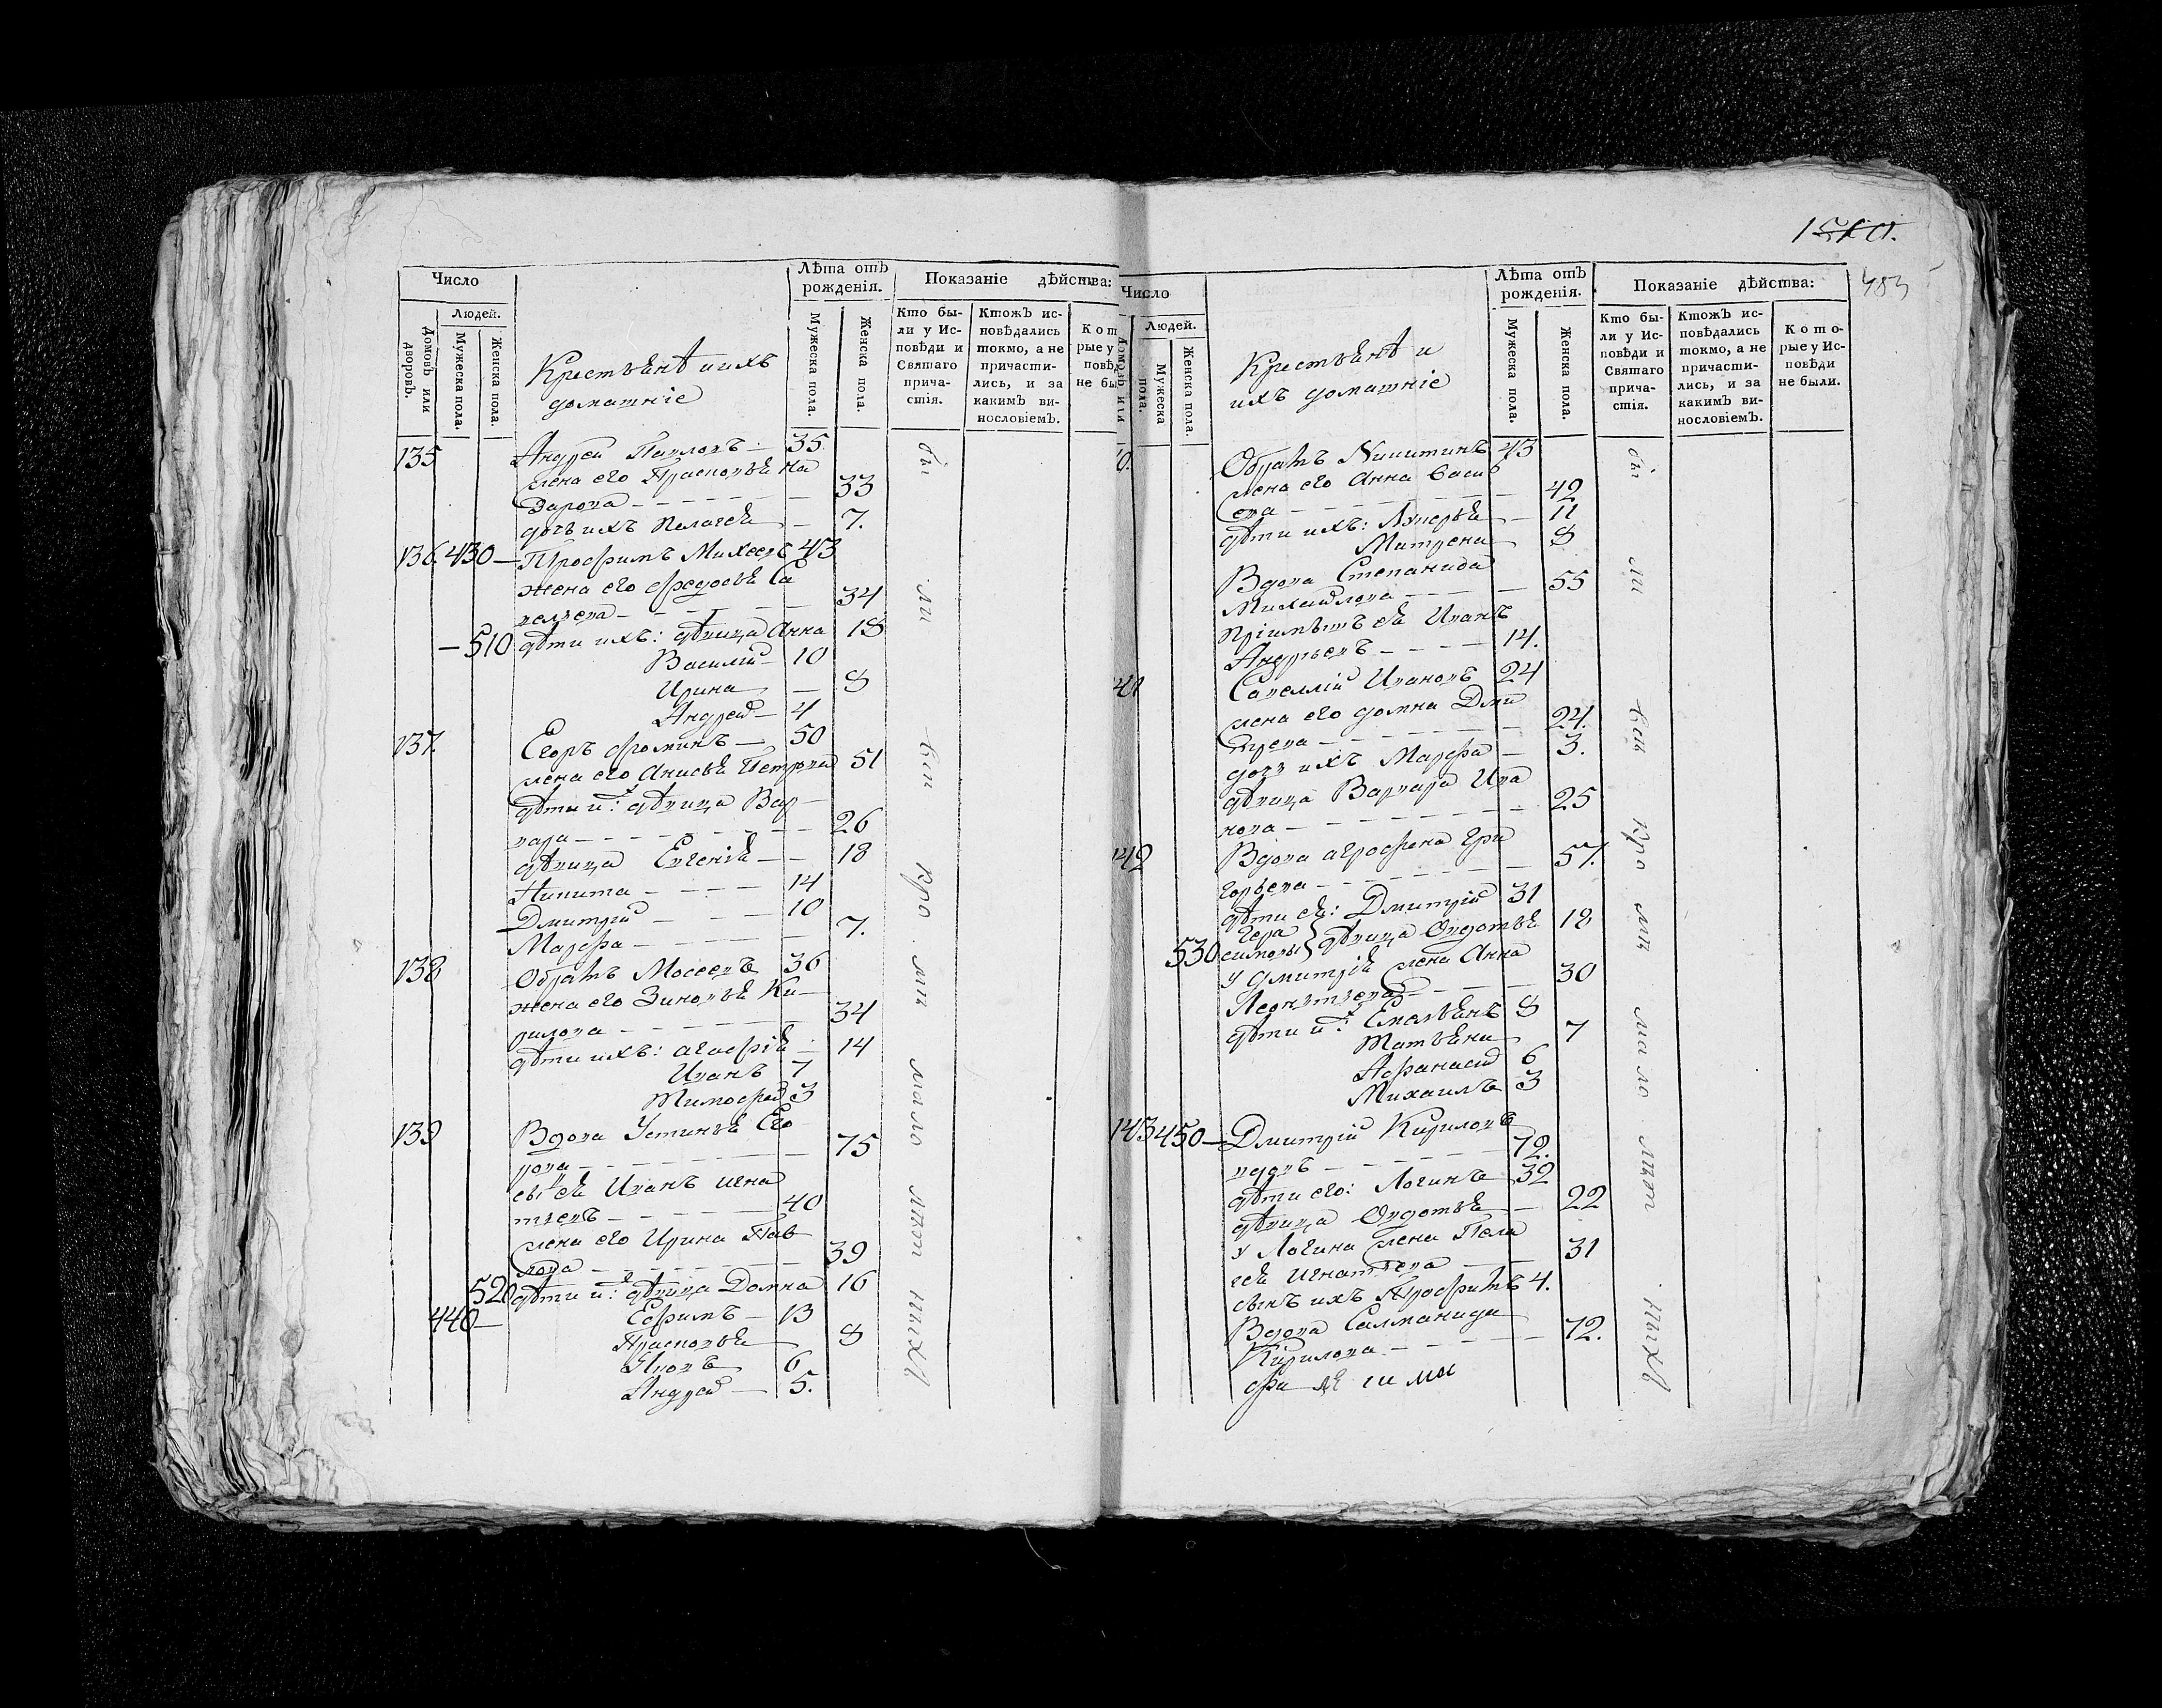 Число
Людей.
Домовъ или дворовъ.
Мужеска пола.
Женска пола.
Крестьянѣ и ихъ
домашніе
Лѣта отъ рожденія.
Мужеска пола.
Женска пола.
Показаніе дѣйства:
Кто бы-
ли у Ис-
повѣди и
Святаго
прича-
стія.
Ктожъ ис-
повѣдались
токмо, а не
причасти-
лись, и за
какимъ ви-
нословіемъ.
Кот
рые у
повѣд
не бы
135 Андрей Павловъ - 35
жена его Прасковья На
зарова - - - - - 33
дочь ихъ Пелагея - 7.
136. 430 - Трофимъ Михеевъ 43
жена его Федосья Са
вельева - - - - 34
- 510 дѣти ихъ: дѣвица Анна 18
Василий - 10
Ирина - 8
Андрей - 4
137. Егоръ Фоминъ - 50
жена его Анисья Петрова 51
дѣти их: дѣвица Вар-
вара - - - - - 26
дѣвица Евгенія - - 18
Никита - - - - 14
Дмитрій - - - 10
Марфа - - - - 7.
138 -Обратъ Мосеевъ 36
жена его Зиновья Ки-
рилова - - - - - 34
дѣти ихъ: Агафія - 14
Иванъ 7
Тимофей 3
139 Вдова Устинья Его
рова - - - - - 75
сынъ ея Иванъ Игна
тьевъ - - - - - 40
жена его Ирина Пав
лова - - - - - 39
520 дѣти их: дѣвица Домна 16
440 - Ефимъ - 13
Прасковья 8
Яковъ 6
Андрей - 5.
бы
ли
вси
кро
мѣ
мало
лѣт
ныхъ
1510.
483
Число
Людей.
Домовъ или
Мужеска пола.
Женска пола.
Крестьянѣ и
ихъ домашніе
Лѣта отъ рожденія.
Мужеска пола.
Женска пола.
Показаніе дѣйства:
Кто бы-
ли у Ис-
повѣди и
Святаго
прича-
стія.
Ктожъ ис-
повѣдались
токмо, а не
причасти-
лись, и за
какимъ ви-
нословіемъ.
Кото-
рые у Ис-
повѣди
не были.
0. Обратъ Никитинъ 43
жена его Анна Васи
ева - - - - - 42
дѣти ихъ: Лукерья - 11
Матрена 8
Вдова Степанида
Михайлова - - - - 55
пріимышъ ея Иванъ
Андреевъ - - - - 14.
41 Савелій Ивановъ 24
жена его Домна Дми
трева - - - - - 24.
дочь ихъ Марфа - 3.
дѣвица Варвара Ива
нова - - - - - 25
142 Вдова Агрофена Гри
горьева - - - - - 57.
дѣти ея: Дмитрій 31
530 Герасимовы } дѣвица Овдотья 18
у Дмитрія жена Анна
Леонтьева - - - - 30
дѣти их: Емельянъ 8
Татьяна 7
Афанасій 6
Михаилъ 3
143 450 - Дмитрій Кириловъ
вдовъ - - - - - 72.
дѣти его: Логинъ 32
дѣвица Овдотья - 22
у Логина жена Пела
гея Игнатьева - 31
сынъ ихъ Трофимъ 4.
Вдова Саламанида
Кирилова - - - - 72.
бы
ли
вси
кро
мѣ
мало
лѣт
ныхъ